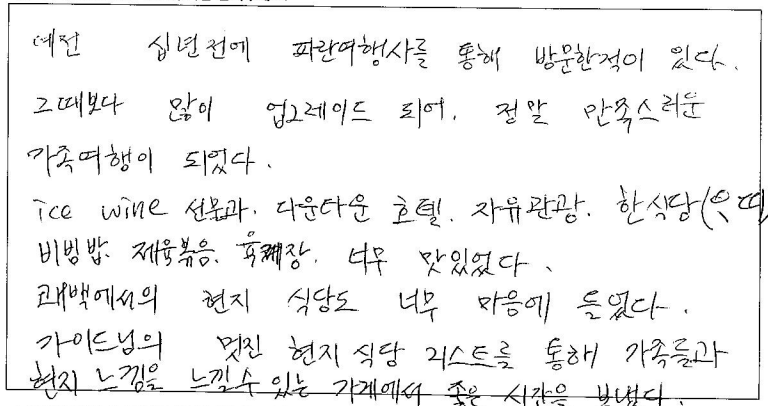 예전 십년전에 파란여행사를 통해 방문한적이 있다.
그때보다 많이 업그레이드 되어, 정말 만족스러운
가족여행이 되었다.
ice wine 선물과, 다운타운 호텔, 자유관광, 한식당(
비빔밥, 제육볶음, 육계장, 너무 맛있었다.
쾌백에서의 현지 식당도 너무 마음에 들었다.
가이드님의 멋진 현지 식당 리스트를 통해 가족들과
현지 느낌을 느낄수 있는 가게에서 좋은 시간을 보냈다.